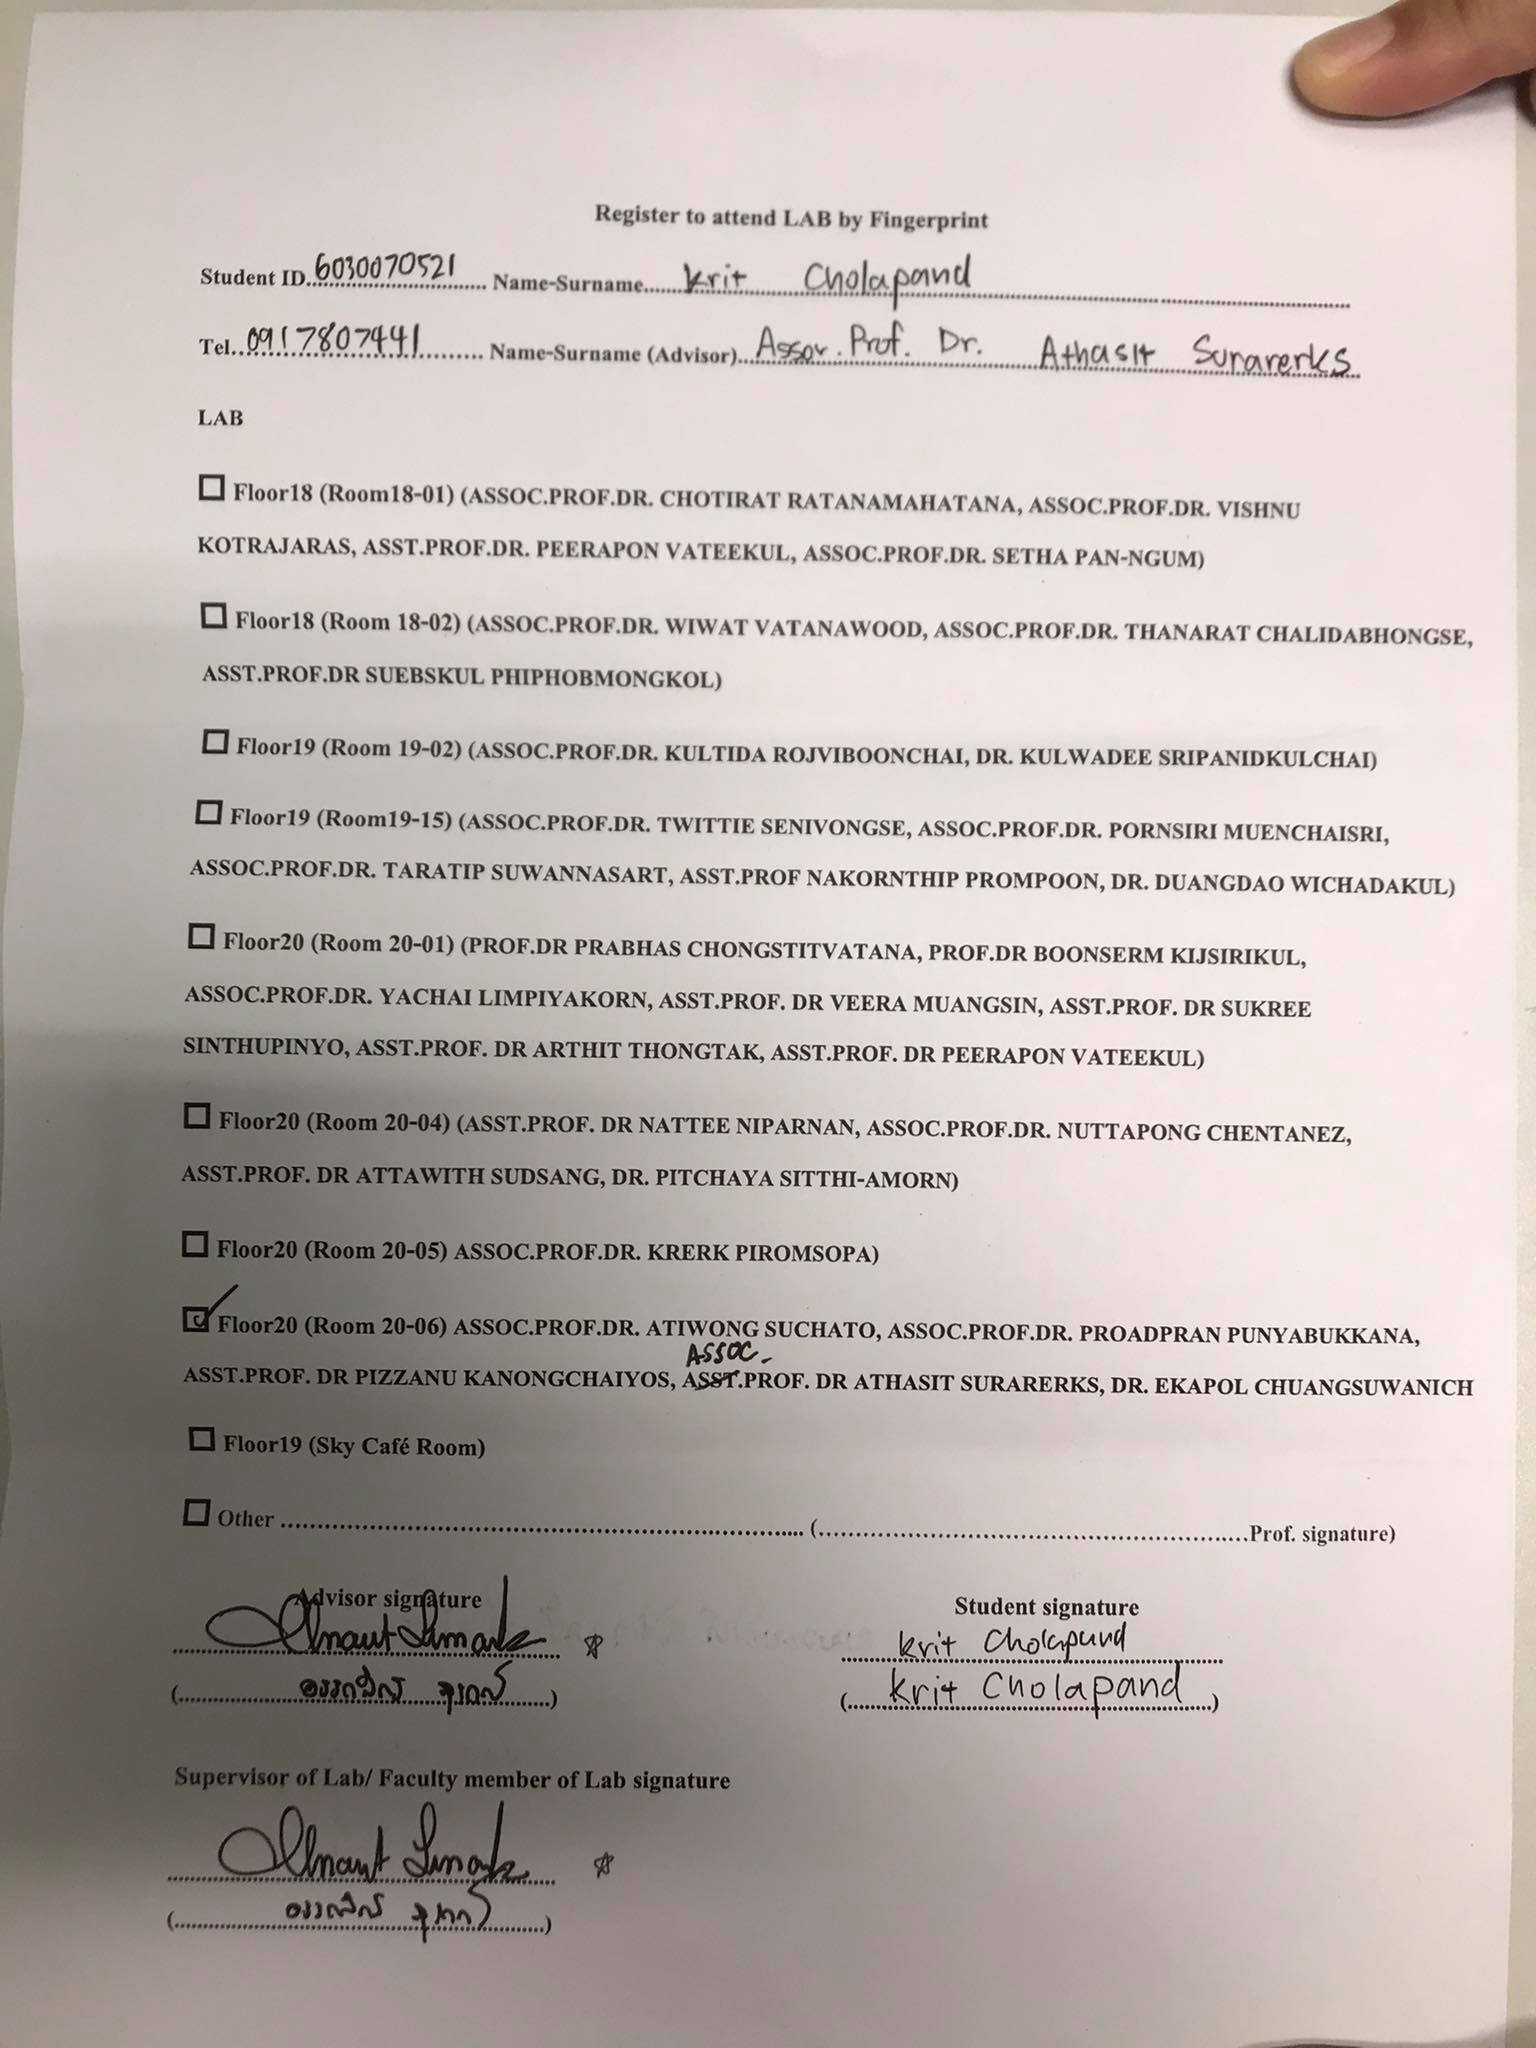 Register to attend LAB by Fingerprint
Student ID..6030070521........ Name-Surname......Krit Cholapand..............................
Tel..0917807441.......... Name-Surname (Advisor)...Assoc. Prof. Dr. Athasit Surarerks
LAB
☐ Floor18 (Room18-01) (ASSOC.PROF.DR. CHOTIRAT RATANAMAHATANA, ASSOC.PROF.DR. VISHNU
KOTRAJARAS, ASST.PROF.DR. PEERAPON VATEEKUL, ASSOC.PROF.DR. SETHA PAN-NGUM)
☐ Floor18 (Room 18-02) (ASSOC.PROF.DR. WIWAT VATANAWOOD, ASSOC.PROF.DR. THANARAT CHALIDABHONGSE,
ASST.PROF.DR SUEBSKUL PHIPHOBMONGKOL)
☐ Floor19 (Room 19-02) (ASSOC.PROF.DR. KULTIDA ROJVIBOONCHAI, DR. KULWADEE SRIPANIDKULCHAI)
☐ Floor19 (Room19-15) (ASSOC.PROF.DR. TWITTIE SENIVONGSE, ASSOC.PROF.DR. PORNSIRI MUENCHAISRI,
ASSOC.PROF.DR. TARATIP SUWANNASART, ASST.PROF NAKORNTHIP PROMPOON, DR. DUANGDAO WICHADAKUL)
☐ Floor20 (Room 20-01) (PROF.DR PRABHAS CHONGSTITVATANA, PROF.DR BOONSERM KIJSIRIKUL,
ASSOC.PROF.DR. YACHAI LIMPIYAKORN, ASST.PROF. DR VEERA MUANGSIN, ASST.PROF. DR SUKREE
SINTHUPINYO, ASST.PROF. DR ARTHIT THONGTAK, ASST.PROF. DR PEERAPON VATEEKUL)
☐ Floor20 (Room 20-04) (ASST.PROF. DR NATTEE NIPARNAN, ASSOC.PROF.DR. NUTTAPONG CHENTANEZ,
ASST.PROF. DR ATTAWITH SUDSANG, DR. PITCHAYA SITTHI-AMORN)
☐ Floor20 (Room 20-05) ASSOC.PROF.DR. KRERK PIROMSOPA)
☑ Floor20 (Room 20-06) ASSOC.PROF.DR. ATIWONG SUCHATO, ASSOC.PROF.DR. PROADPRAN PUNYABUKKANA,
ASSOC.
ASST.PROF. DR PIZZANU KANONGCHAIYOS, ASST.PROF. DR ATHASIT SURARERKS, DR. EKAPOL CHUANGSUWANICH
☐ Floor19 (Sky Café Room)
☐ Other ................................ (................................Prof. signature)
Advisor signature Student signature
Krit Cholapand
(อรรถสิทธิ์ สุรฤกษ์) (Krit Cholapand)
Supervisor of Lab/ Faculty member of Lab signature
(อรรถสิทธิ์ สุรฤกษ์)